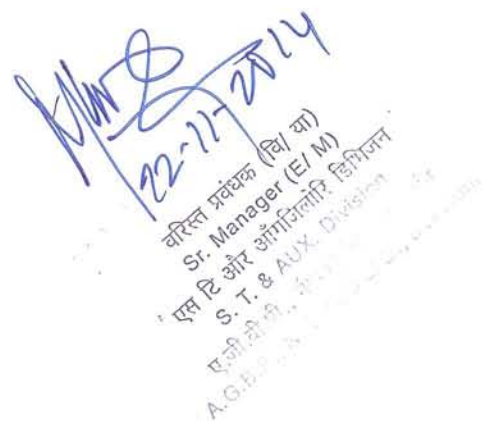 22-11-2014
वरिस्त प्रवंधक (वि/ या)
Sr. Manager (E/ M)
एस टि और ऑगजिलोरि डिभिजन
S. T. & AUX. Division
ए.जी.बी.पी.,
A.G.B.P.,